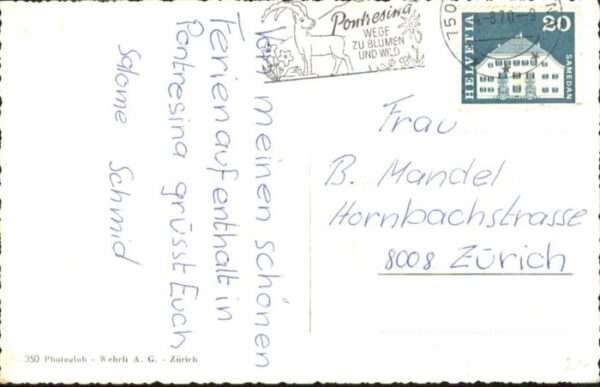 Pontresina
WEGE
ZU BLUMEN
UND WILD
HELVETIA
20
SAMEDAN
Vom meinen schönen
Ferienaufenthalt in
Pontresina grüsst Euch
Salome Schmid
Frau
B. Mandel
Hornbachstrasse
8008 Zürich
350 Photoglob - Wehrli A. G. - Zürich